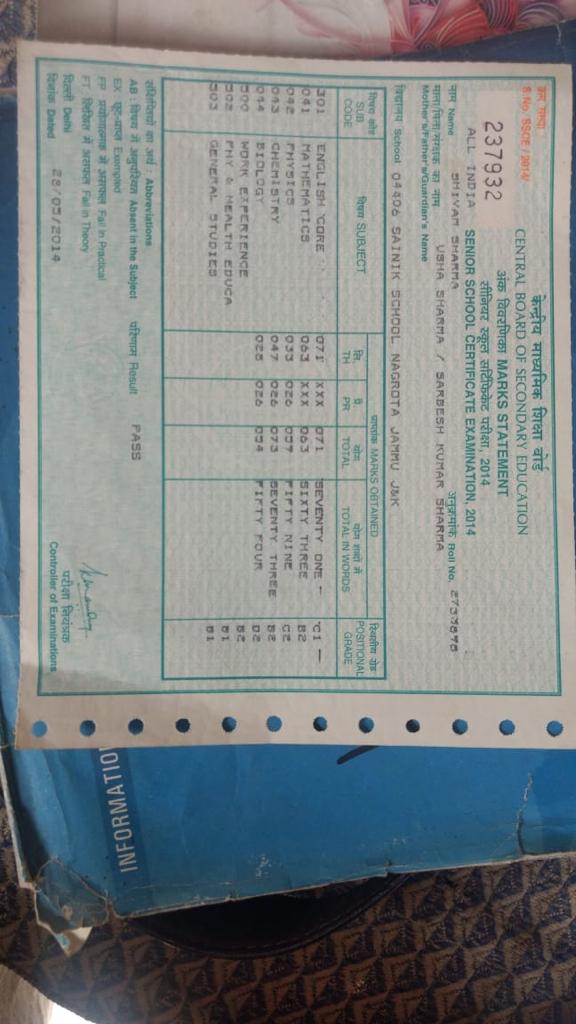 क्रम संख्या
S.No. SSCE / 2014/
237932
केन्द्रीय माध्यमिक शिक्षा बोर्ड
CENTRAL BOARD OF SECONDARY EDUCATION
अंक विवरणिका MARKS STATEMENT
सीनियर स्कूल सर्टिफिकेट परीक्षा, 2014
ALL INDIA SENIOR SCHOOL CERTIFICATE EXAMINATION, 2014
नाम Name SHIVAM SHARMA अनुक्रमांक Roll No.
माता/पिता/संरक्षक का नाम USHA SHARMA / SARBESH KUMAR SHARMA
Mother's/Father's/Guardian's Name
विद्यालय School 04406 SAINIK SCHOOL NAGROTA JAMMU J&K
विषय कोड SUB CODE विषय SUBJECT प्राप्तांक MARKS OBTAINED स्थितीय ग्रेड POSITIONAL GRADE
लि. TH प्रै. PR योग TOTAL योग शब्दों में TOTAL IN WORDS
301 ENGLISH CORE 071 XXX 071 SEVENTY ONE C1
041 MATHEMATICS 063 XXX 063 SIXTY THREE B2
042 PHYSICS 033 026 059 FIFTY NINE C2
043 CHEMISTRY 047 026 073 SEVENTY THREE B2
044 BIOLOGY 028 026 054 FIFTY FOUR D2
500 WORK EXPERIENCE B2
502 PHY & HEALTH EDUCA B1
503 GENERAL STUDIES B1
संक्षिप्तियों का अर्थ : Abbreviations
AB : विषय में अनुपस्थित Absent in the Subject परिणाम Result PASS
EX छूट-प्राप्त Exempted
FP प्रयोगात्मक में असफल Fail in Practical
FT लिखित में असफल Fail in Theory
दिल्ली Delhi
दिनांक Dated 28/05/2014
परीक्षा नियंत्रक
Controller of Examinations
INFORMATIO